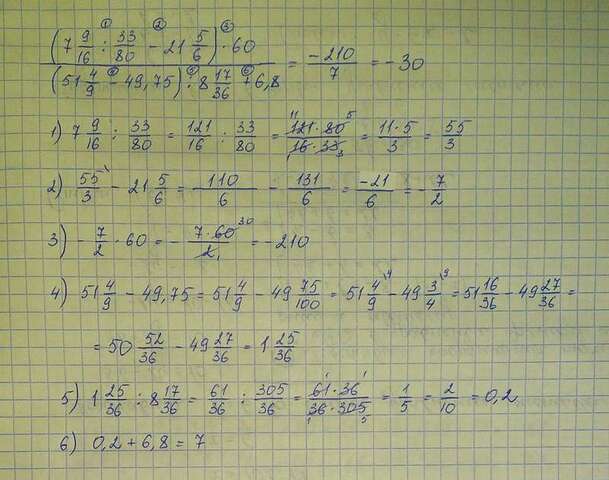 ① ② ③
(7 9/16 : 33/80 − 21 5/6) · 60
④ ⑤ ⑥
(51 4/9 − 49,75) : 8 17/36 + 6,8
= −210/7 = −30
1) 7 9/16 : 33/80 = 121/16 : 33/80 = 121·80/16·33 = 11·5/3 = 55/3
2) 55/3 − 21 5/6 = 110/6 − 131/6 = −21/6 = −7/2
3) −7/2 · 60 = −7·60/2 = −210
4) 51 4/9 − 49,75 = 51 4/9 − 49 75/100 = 51 4/9 − 49 3/4 = 51 16/36 − 49 27/36 =
= 50 52/36 − 49 27/36 = 1 25/36
5) 1 25/36 : 8 17/36 = 61/36 : 305/36 = 61·36/36·305 = 1/5 = 2/10 = 0,2
6) 0,2 + 6,8 = 7